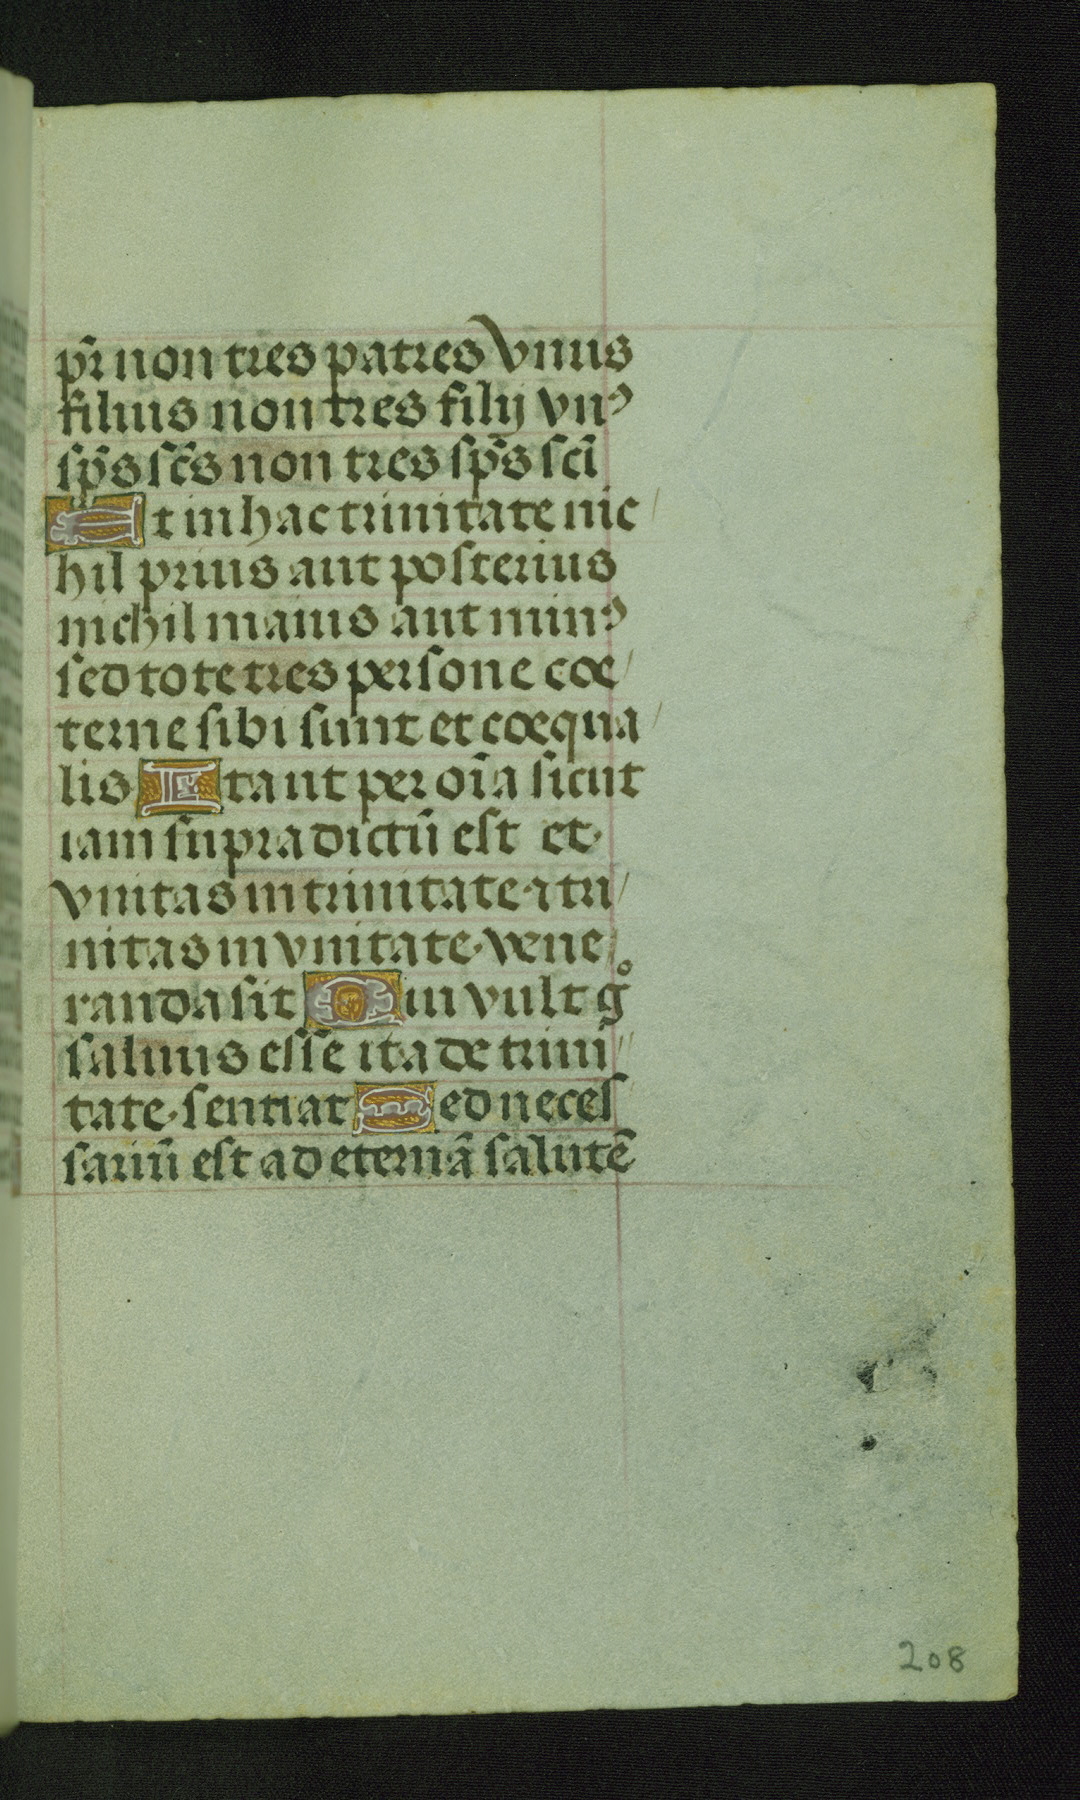 pr̃ non tres patres Vnus
filius non tres filij vnꝰ
sp̃s sc̃s non tres sp̃s sc̃i
Et in hac trinitate nic/
hil prius aut posterius
nichil maius aut minꝰ
sed tote tres persone coe/
terne sibi sunt et coequa/
lis Ita ut per oĩa sicut
iam supra dictũ est et
vnitas in trinitate ⁊ tri/
nitas in vnitate vene/
randa sit Qui vult gͦ
saluus esse ita de trini/
tate sentiat Sed neces
sariũ est ad eternã salutẽ
208